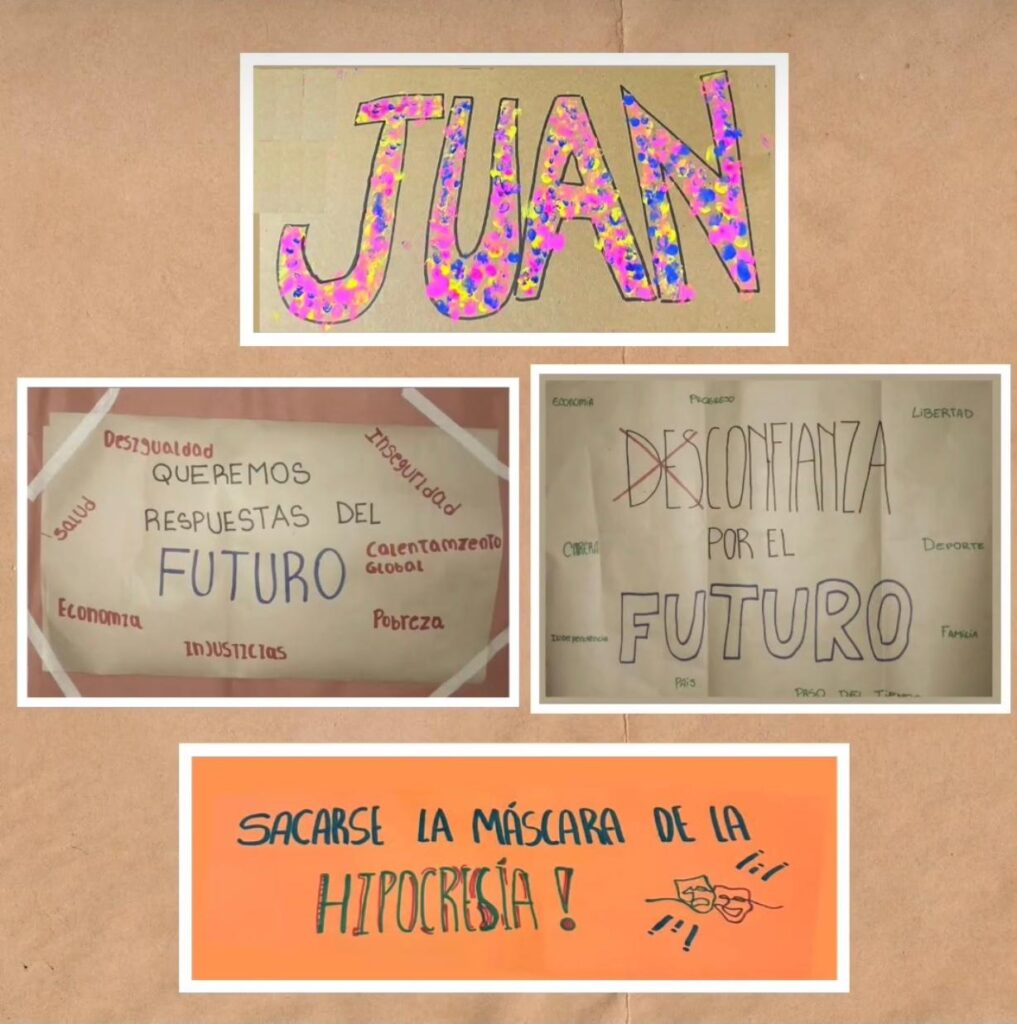 JUAN
Desigualdad
Inseguridad
QUEREMOS
Salud
RESPUESTAS DEL
Calentamiento
Global
FUTURO
Economia
Pobreza
INJUSTICIAS
ECONOMÍA
PROGRESO
LIBERTAD
DESCONFIANZA
POR EL
DEPORTE
FUTURO
Independencia
FAMILIA
PAÍS
PASO DEL TIEMPO
SACARSE LA MÁSCARA DE LA
HIPOCRESÍA!